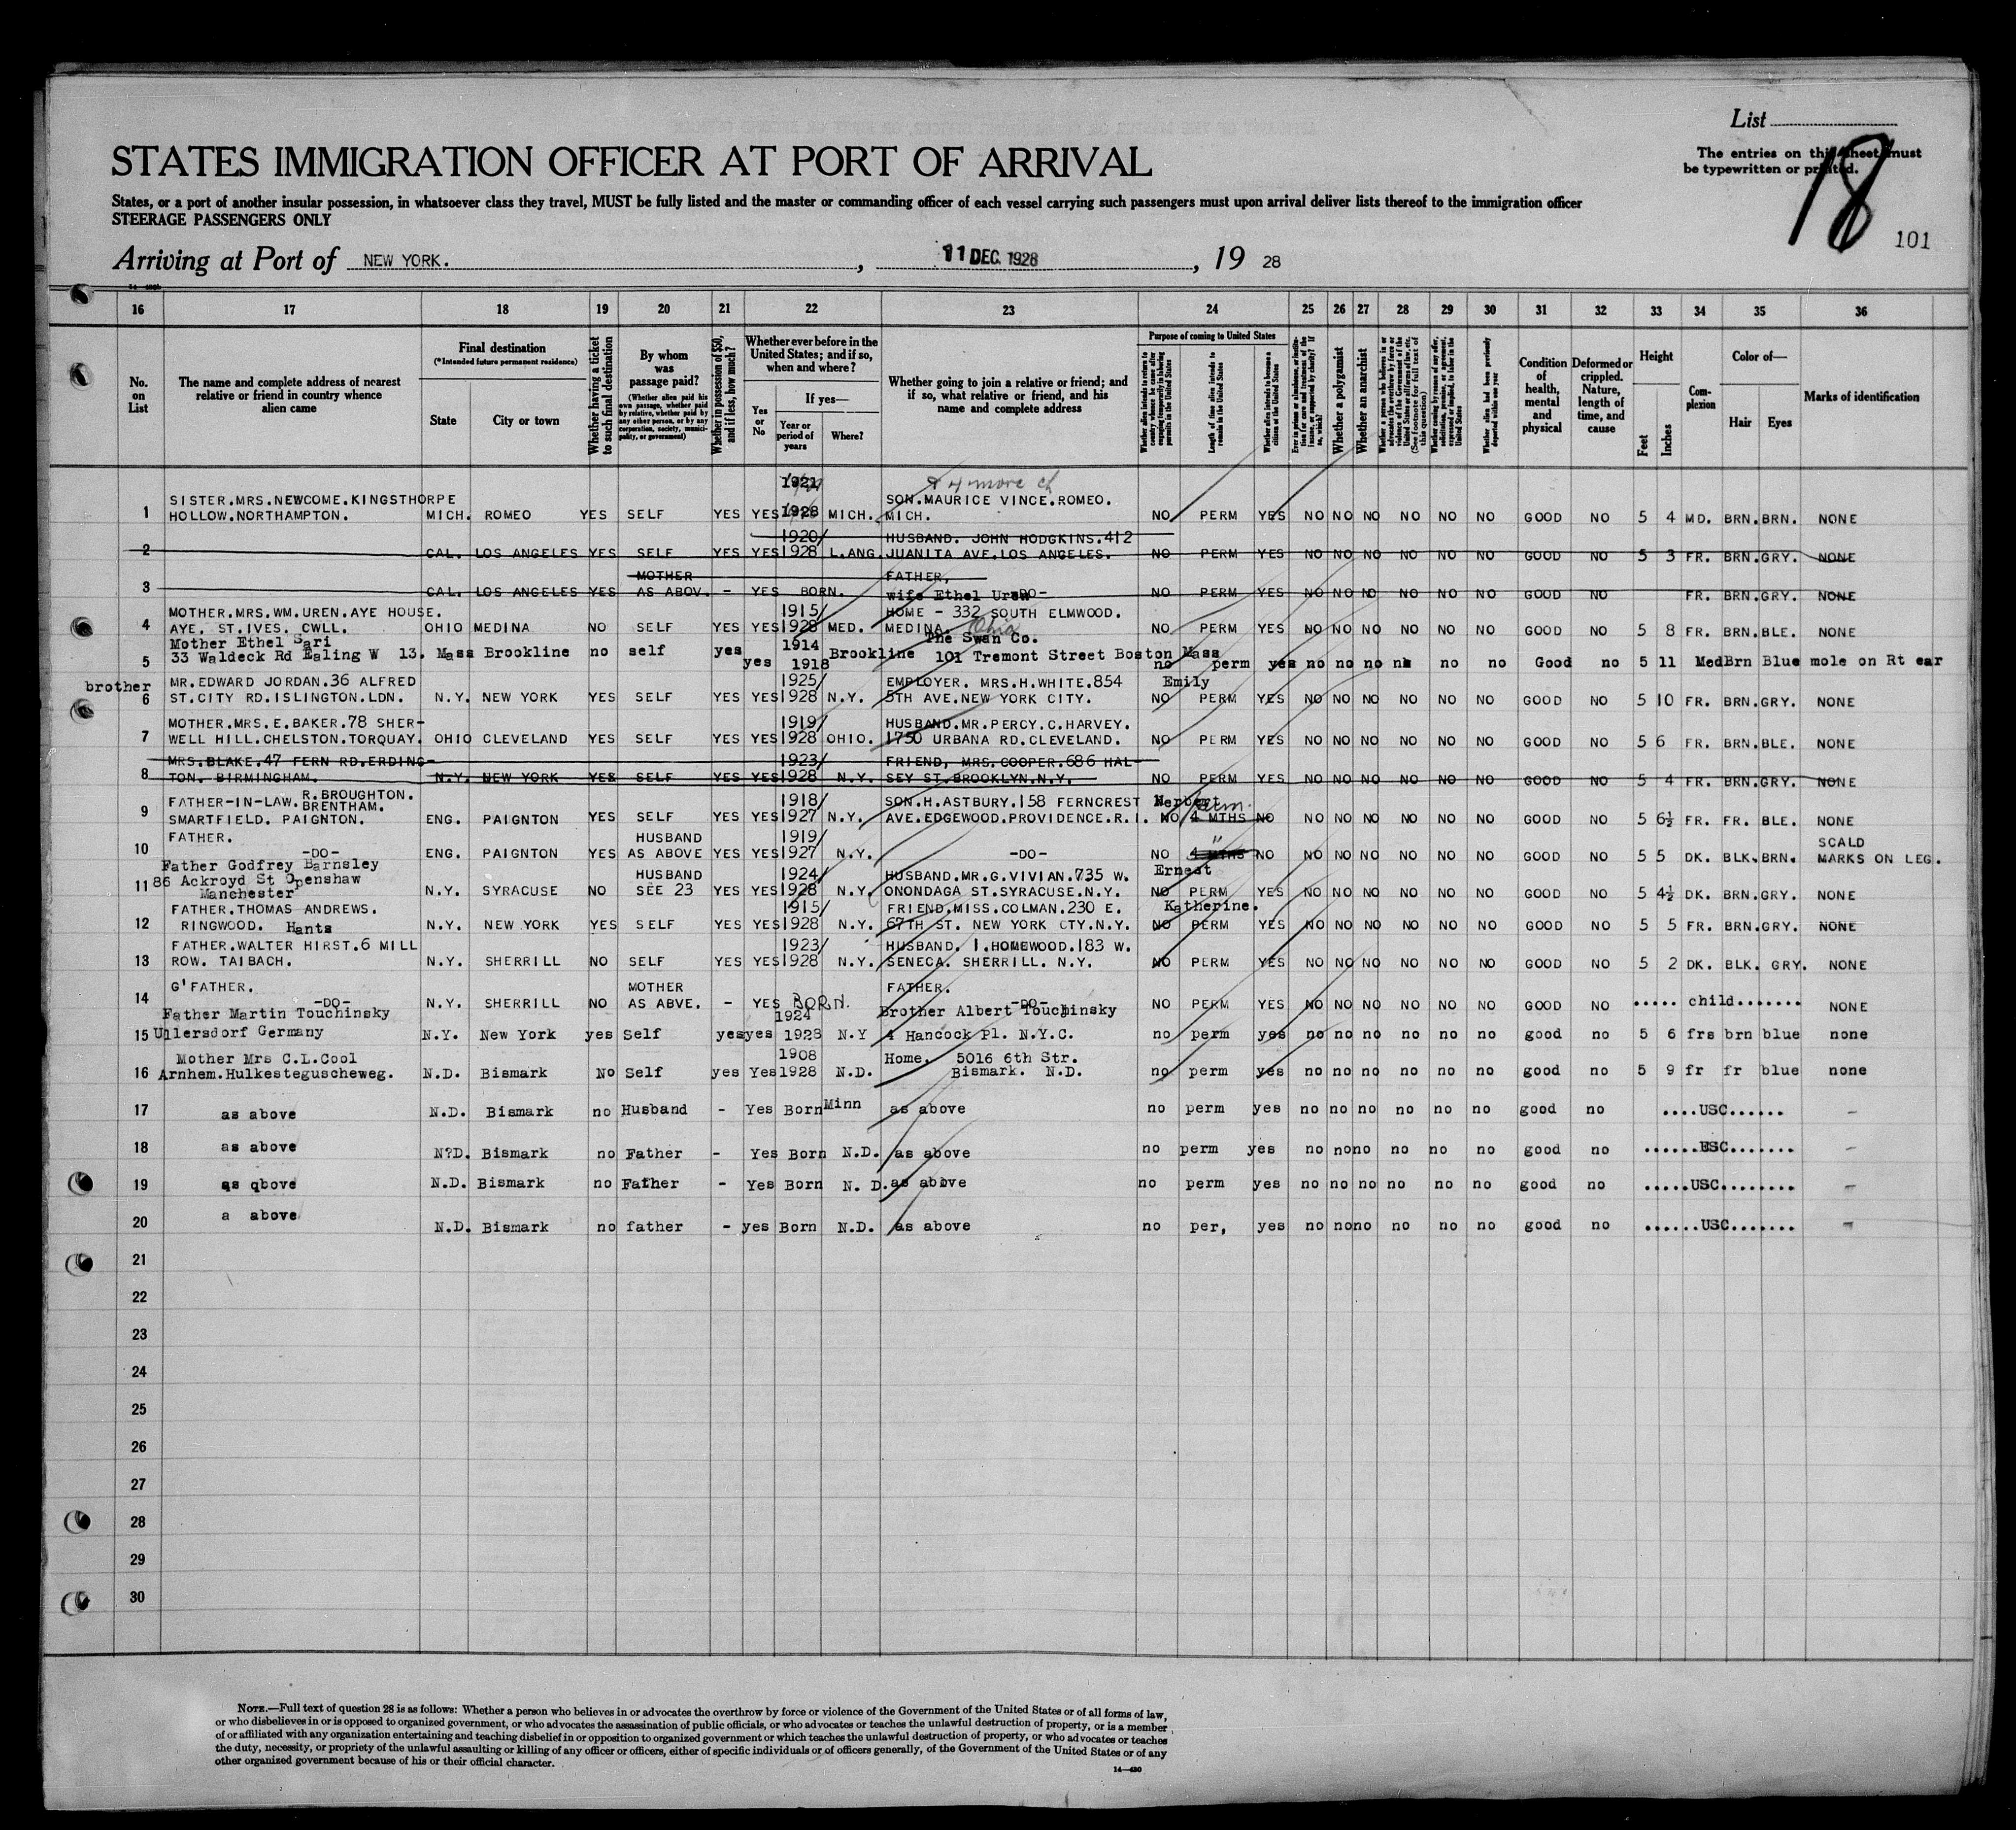 List
The entries on this sheet must
be typewritten or printed.
18
101
STATES IMMIGRATION OFFICER AT PORT OF ARRIVAL
States, or a port of another insular possession, in whatsoever class they travel, MUST be fully listed and the master or commanding officer of each vessel carrying such passengers must upon arrival deliver lists thereof to the immigration officer
STEERAGE PASSENGERS ONLY
Arriving at Port of NEW YORK. , 11 DEC. 1928 , 19 28
16 17 18 19 20 21 22 23 24 25 26 27 28 29 30 31 32 33 34 35 36
No. on List
The name and complete address of nearest relative or friend in country whence alien came
Final destination
(*Intended future permanent residence)
State
City or town
Whether having a ticket to such final destination
By whom was passage paid?
(Whether alien paid his own passage, whether paid by relative, whether paid by any other person, or by any corporation, society, municipality, or government)
Whether in possession of $50, and if less, how much?
Whether ever before in the United States; and if so, when and where?
Yes or No
If yes—
Year or period of years
Where?
Whether going to join a relative or friend; and if so, what relative or friend, and his name and complete address
Purpose of coming to United States
Whether alien intends to return to country whence he came after engaging temporarily in laboring pursuits in the United States
Length of time alien intends to remain in the United States
Whether alien intends to become a citizen of the United States
Whether a polygamist
Whether an anarchist
Whether alien had been previously deported within one year
Condition of health, mental and physical
Deformed or crippled. Nature, length of time, and cause
Height
Feet
Inches
Complexion
Color of—
Hair
Eyes
Marks of identification
1921 & 4 more ch
SISTER.MRS.NEWCOME.KINGSTHORPE SON.MAURICE VINCE.ROMEO.
1 HOLLOW.NORTHAMPTON. MICH. ROMEO YES SELF YES YES 1928 MICH. MICH. NO PERM YES NO NO NO NO NO NO GOOD NO 5 4 MD. BRN. BRN. NONE
1920/ HUSBAND. JOHN HODGKINS.412
2 CAL. LOS ANGELES YES SELF YES YES 1928 L.ANG. JUANITA AVE.LOS ANGELES. NO PERM YES NO NO NO NO NO NO GOOD NO 5 3 FR. BRN. GRY. NONE
MOTHER FATHER,
3 CAL. LOS ANGELES YES AS ABOV. - YES BORN. -DO- NO PERM YES NO NO NO NO NO NO GOOD NO FR. BRN. GRY. NONE
wife Ethel Uren
MOTHER.MRS.WM.UREN.AYE HOUSE. 1915/ HOME - 332 SOUTH ELMWOOD.
4 AYE. ST.IVES. CWLL. OHIO MEDINA NO SELF YES YES 1928 MED. MEDINA. Ohio NO PERM YES NO NO NO NO NO NO GOOD NO 5 8 FR. BRN. BLE. NONE
Mother Ethel Sari 1914 The Swan Co.
5 33 Waldeck Rd Ealing W 13. Mass Brookline no self yes yes 1918 Brookline 101 Tremont Street Boston Mass no perm yes no no no no no no Good no 5 11 Med Brn Blue mole on Rt ear
brother MR.EDWARD JORDAN.36 ALFRED 1925/ EMPLOYER. MRS.H.WHITE.854 Emily
6 ST.CITY RD.ISLINGTON.LDN. N.Y. NEW YORK YES SELF YES YES 1928 N.Y. 5TH AVE.NEW YORK CITY. NO PERM YES NO NO NO NO NO NO GOOD NO 5 10 FR. BRN. GRY. NONE
MOTHER.MRS.E.BAKER.78 SHER- 1919/ HUSBAND.MR.PERCY.C.HARVEY.
7 WELL HILL.CHELSTON.TORQUAY. OHIO CLEVELAND YES SELF YES YES 1928 OHIO. 1750 URBANA RD.CLEVELAND. NO PERM YES NO NO NO NO NO NO GOOD NO 5 6 FR. BRN. BLE. NONE
MRS.BLAKE.47 FERN RD.ERDING- 1923/ FRIEND, MRS.COOPER.686 HAL-
8 TON. BIRMINGHAM. N.Y. NEW YORK YES SELF YES YES 1928 N.Y. SEY ST.BROOKLYN.N.Y. NO PERM YES NO NO NO NO NO NO GOOD NO 5 4 FR. BRN. GRY. NONE
FATHER-IN-LAW. R.BROUGHTON. BRENTHAM. 1918/ SON.H.ASTBURY.158 FERNCREST Herbert Perm.
9 SMARTFIELD. PAIGNTON. ENG. PAIGNTON YES SELF YES YES 1927 N.Y. AVE.EDGEWOOD.PROVIDENCE.R.I. NO 4 MTHS NO NO NO NO NO NO NO GOOD NO 5 6½ FR. FR. BLE. NONE
FATHER. HUSBAND 1919/ " SCALD
10 -DO- ENG. PAIGNTON YES AS ABOVE YES YES 1927 N.Y. -DO- NO 4 MTHS NO NO NO NO NO NO NO GOOD NO 5 5 DK. BLK. BRN. MARKS ON LEG.
Father Godfrey Barnsley HUSBAND 1924/ HUSBAND.MR.G.VIVIAN.735 W. Ernest
11 86 Ackroyd St Openshaw N.Y. SYRACUSE NO SEE 23 YES YES 1928 N.Y. ONONDAGA ST.SYRACUSE.N.Y. NO PERM YES NO NO NO NO NO NO GOOD NO 5 4½ DK. BRN. GRY. NONE
Manchester
FATHER.THOMAS ANDREWS. 1915/ FRIEND.MISS.COLMAN.230 E. Katherine.
12 RINGWOOD. Hants N.Y. NEW YORK YES SELF YES YES 1928 N.Y. 67TH ST. NEW YORK CTY.N.Y. NO PERM YES NO NO NO NO NO NO GOOD NO 5 5 FR. BRN. GRY. NONE
FATHER.WALTER HIRST.6 MILL 1923/ HUSBAND. I.HOMEWOOD.183 W.
13 ROW. TAIBACH. N.Y. SHERRILL NO SELF YES YES 1928 N.Y. SENECA. SHERRILL. N.Y. NO PERM YES NO NO NO NO NO NO GOOD NO 5 2 DK. BLK. GRY. NONE
G'FATHER. MOTHER FATHER.
14 -DO- N.Y. SHERRILL NO AS ABVE. - YES BORN. -DO- NO PERM YES NO NO NO NO NO NO GOOD NO ..... child....... NONE
Father Martin Touchinsky 1924 Brother Albert Touchinsky
15 Ullersdorf Germany N.Y. New York yes Self yes yes 1928 N.Y 4 Hancock Pl. N.Y.C. no perm yes no no no no no no good no 5 6 frs brn blue none
Mother Mrs C.L.Cool 1908 Home. 5016 6th Str.
16 Arnhem.Hulkesteguscheweg. N.D. Bismark No Self yes Yes 1928 N.D. Bismark. N.D. no perm yes no no no no no no good no 5 9 fr fr blue none
17 as above N.D. Bismark no Husband - Yes Born Minn as above no perm yes no no no no no no good no ....USC...... -
18 as above N?D. Bismark no Father - Yes Born N.D. as above no perm yes no no no no no no good no ......USC....... -
19 as qbove N.D. Bismark no Father - Yes Born N. D. as above no perm yes no no no no no no good no .....USC........ -
20 a above N.D. Bismark no father - yes Born N.D. as above no per, yes no no no no no no good no ......USC....... -
21
22
23
24
25
26
27
28
29
30
NOTE.—Full text of question 28 is as follows: Whether a person who believes in or advocates the overthrow by force or violence of the Government of the United States or of all forms of law,
or who disbelieves in or is opposed to organized government, or who advocates the assassination of public officials, or who advocates or teaches the unlawful destruction of property, or is a member
of or affiliated with any organization entertaining and teaching disbelief in or opposition to organized government or which teaches the unlawful destruction of property, or who advocates or teaches
the duty, necessity, or propriety of the unlawful assaulting or killing of any officer or officers, either of specific individuals or of officers generally, of the Government of the United States or of any
other organized government because of his or their official character.
14—430